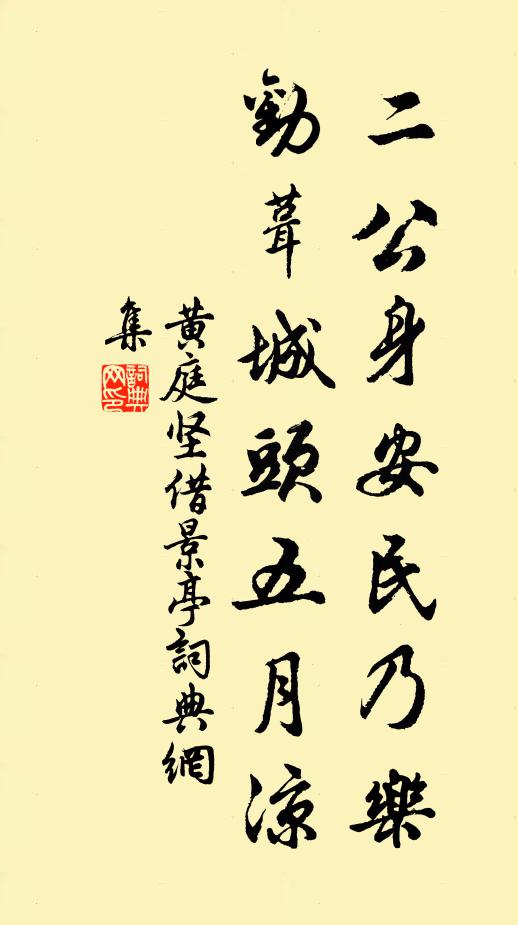 二公身安民乃樂
勸葺城頭五月涼
黄庭坚借景亭詞典網
集
詞典网印